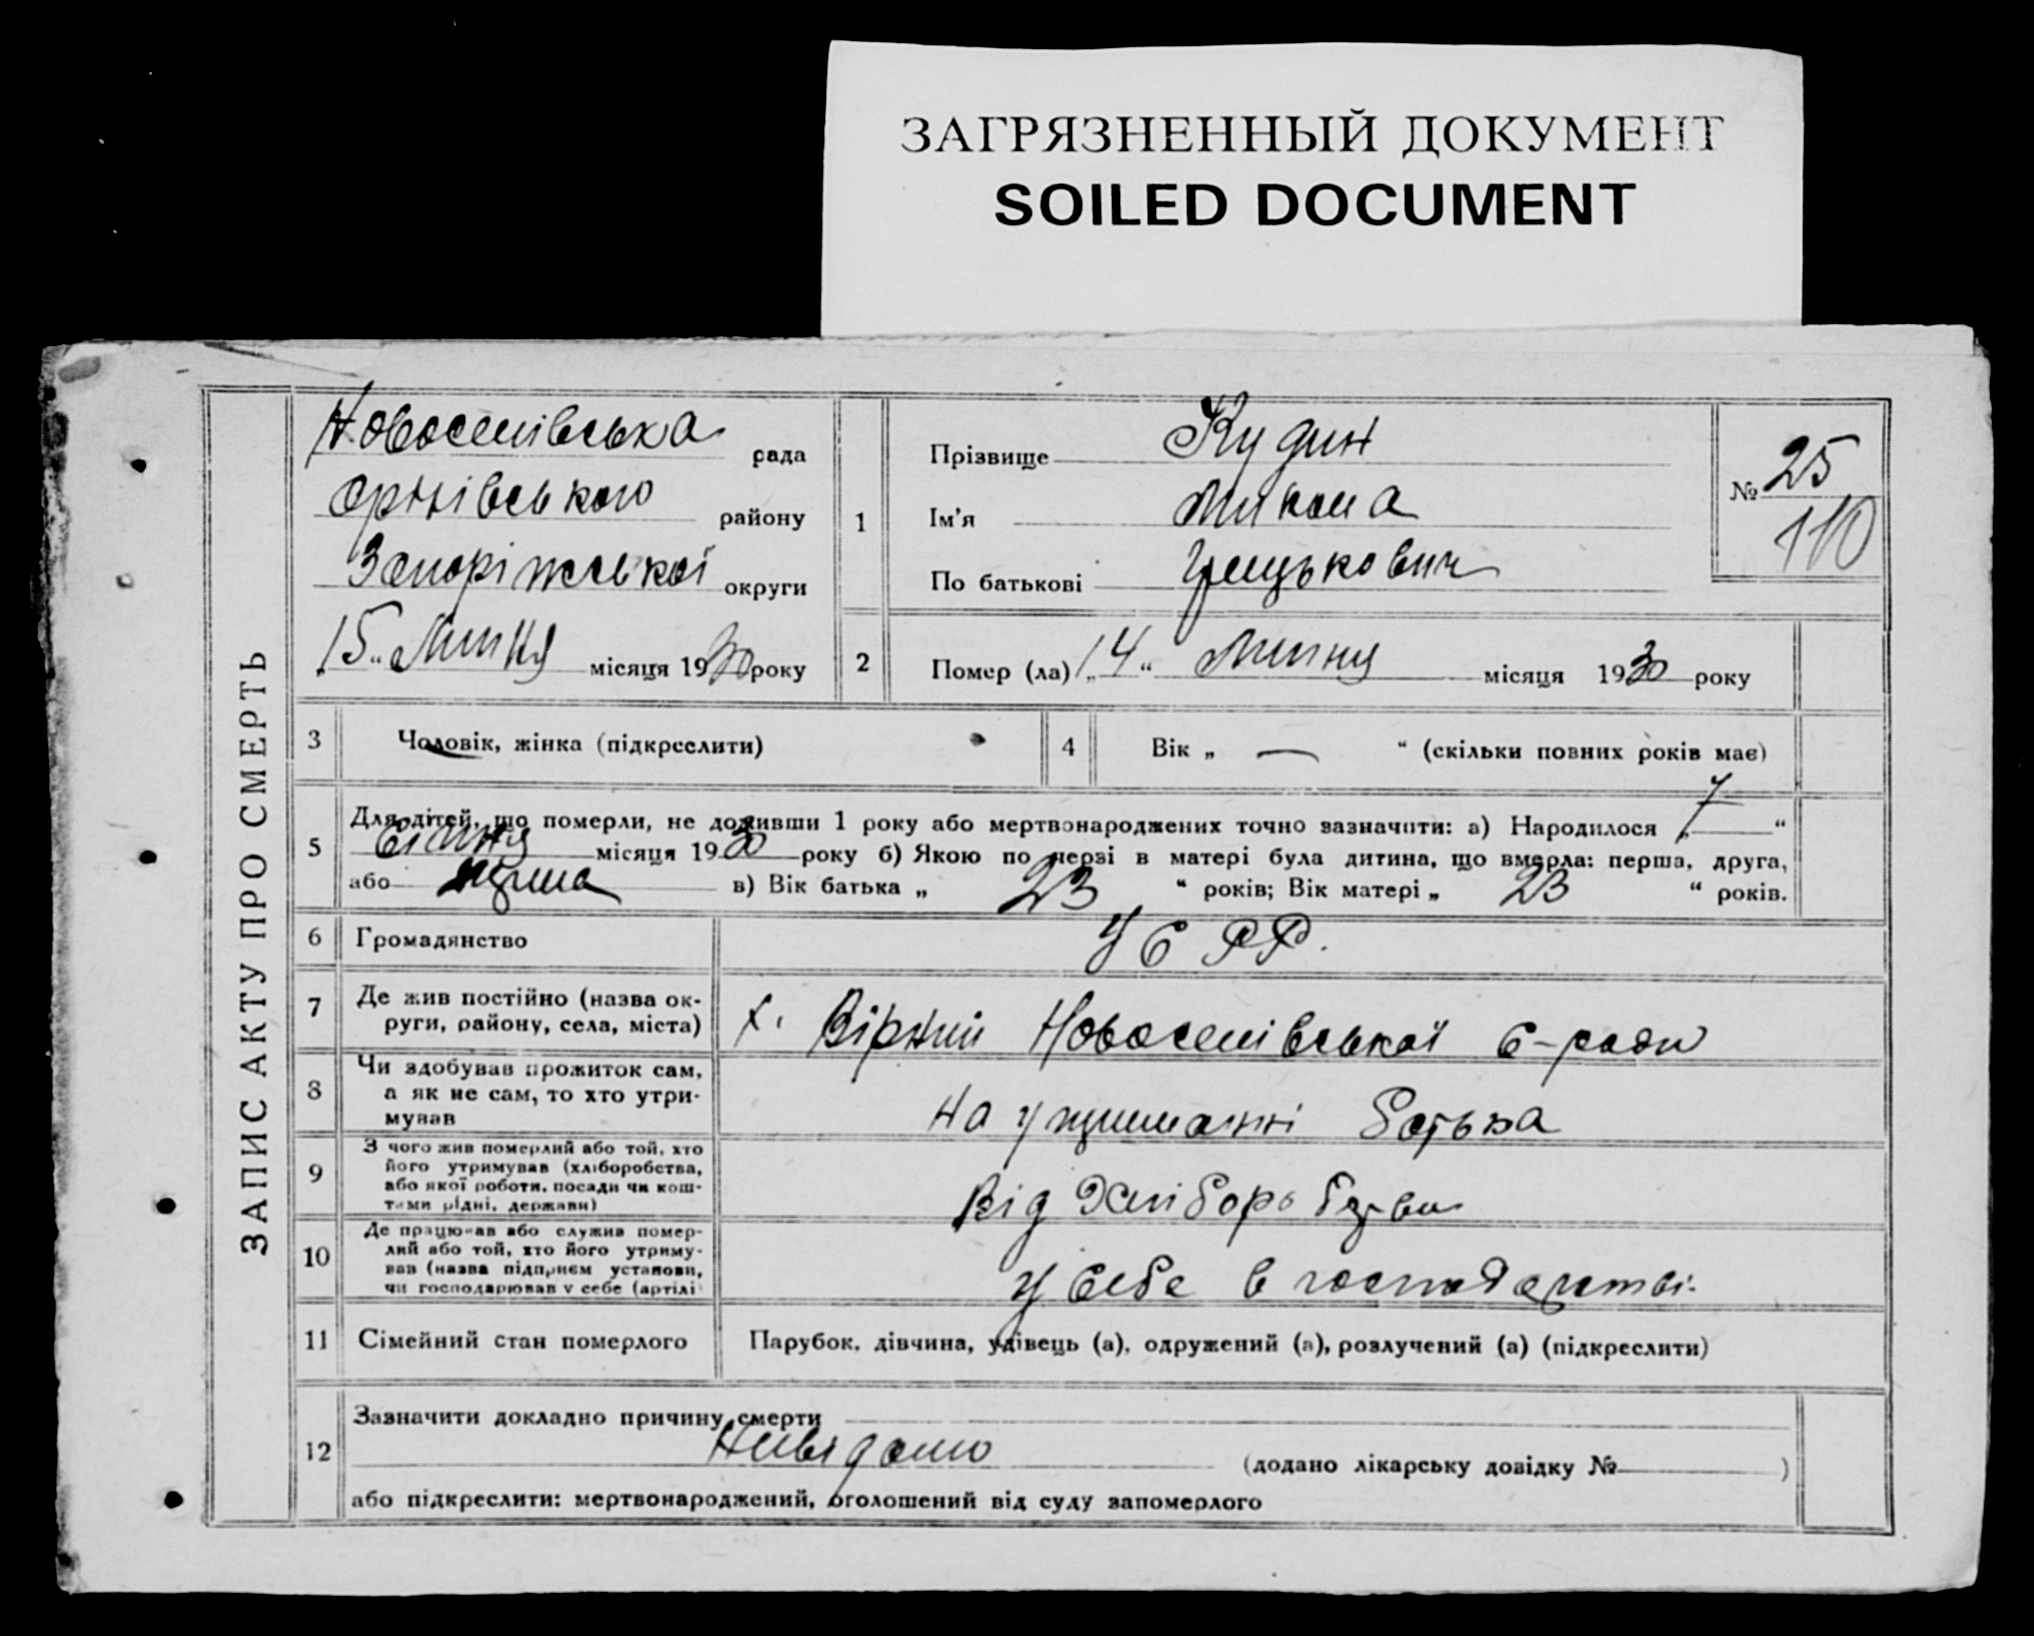 ЗАГРЯЗНЕННЫЙ ДОКУМЕНТ
SOILED DOCUMENT
ЗАПИС АКТУ ПРО СМЕРТЬ
Новоселівська рада
району
Запоріжської округи
„15“ Липня місяця 1930 року
1
Прізвище Кудин
Ім'я Микола
По батькові Грицькович
№ 25
110
2
Помер (ла) „14“ Липня місяця 1930 року
3 Чоловік, жінка (підкреслити)
4 Вік „ — “ (скільки повних років має)
5 Для дітей, що померли, не доживши 1 року або мертвонароджених точно зазначити: а) Народилося „7“
Січня місяця 1930 року б) Якою по черзі в матері була дитина, що вмерла: перша, друга,
або перша в) Вік батька „ 23 “ років; Вік матері „ 23 “ років.
6 Громадянство УСРР.
7 Де жив постійно (назва ок-
руги, району, села, міста)
х. Вірний Новоселівської с-ради
8 Чи здобував прожиток сам,
а як не сам, то хто утри-
мував
на утриманні батька
9 З чого жив померлий або той, хто
його утримував (хліборобства,
або якої роботи, посади чи кош-
тами рідні, держави)
Від Хліборобства
10 Де працював або служив помер-
лий або той, хто його утриму-
вав (назва підприєм установи,
чи господарював у себе (артілі
У себе в господарстві.
11 Сімейний стан померлого Парубок, дівчина, удівець (а), одружений (а), розлучений (а) (підкреслити)
12 Зазначити докладно причину смерти
Невідомо (додано лікарську довідку № )
або підкреслити: мертвонароджений, оголошений від суду запомерлого